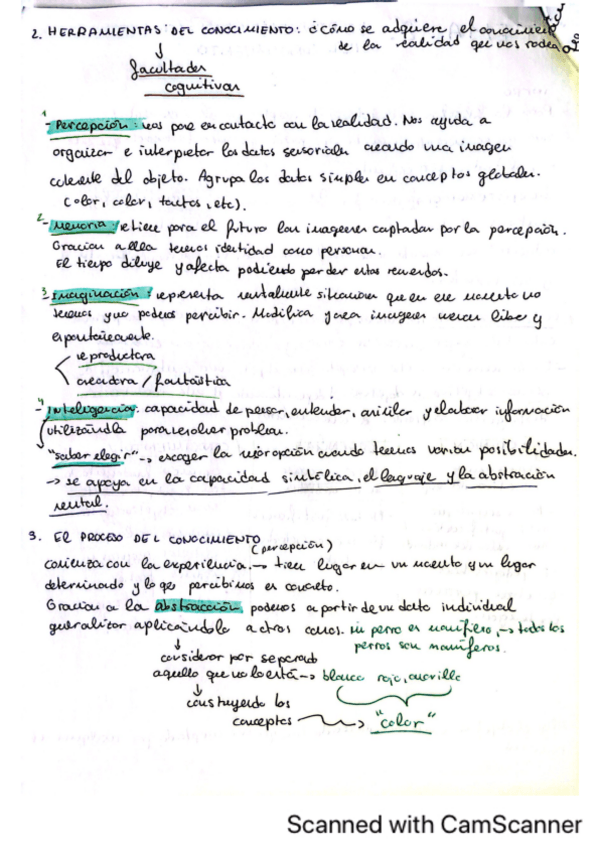 2. HERRAMIENTAS DEL CONOCIMIENTO: ¿Cómo se adquiere el conocimiento
de la realidad que nos rodea
↓
facultades
cognitivas
1- Percepción: nos pone en contacto con la realidad. Nos ayuda a
organizar e interpretar los datos sensoriales creando una imagen
coherente del objeto. Agrupa los datos simples en conceptos globales.
(olor, color, tactos, etc).
2- Memoria: retiene para el futuro las imagenes captadas por la percepción.
Gracias a ella tenemos identidad como personas.
El tiempo diluye y afecta pudiendo perder estos recuerdos.
3- Imaginación: representa mentalmente situaciones que en ese momento no
tenemos y no podemos percibir. Modifica y crea imagenes libre y
espontáneamente.
reproductora
creadora / fantástica
4- Inteligencia: capacidad de pensar, entender, asimilar y elaborar información
utilizándla para resolver problem.
"saber elegir" → escoger la mejor opción cuando tenemos varias posibilidades.
→ se apoya en la capacidad simbólica, el lenguaje y la abstración
mental.
3. EL PROCESO DEL CONOCIMIENTO
(percepción)
comienza con la experiencia. → tiene lugar en un momento y un lugar
determinado y lo que percibimos es concreto.
Gracias a la abstracción, podemos a partir de un dato individual
generalizar aplicándolo a otros casos. mi perro es mamífero, → todos los
perros son mamíferos.
↓
considerar por separado
aquello que no lo está → blanco rojo, amarillo
↓
construyendo los
conceptos → "color"
Scanned with CamScanner